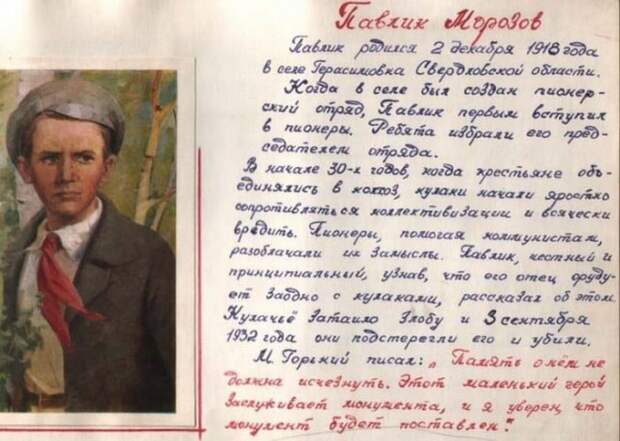 Павлик Морозов
Павлик родился 2 декабря 1918 года
в селе Герасимовка Свердловской области.
Когда в селе был создан пионер-
ский отряд, Павлик первым вступил
в пионеры. Ребята избрали его пред-
седателем отряда.
В начале 30-х годов, когда крестьяне объ-
единялись в колхоз, кулаки начали яростно
сопротивляться коллективизации и всячески
вредить. Пионеры, помогая коммунистам,
разоблачали их замыслы. Павлик, честный и
принципиальный, узнав, что его отец оруду-
ет заодно с кулаками, рассказал об этом.
Кулачьё затаило злобу и 3 сентября
1932 года они подстерегли его и убили.
М. Горький писал: „Память о нём не
должна исчезнуть. Этот маленький герой
заслуживает монумента, и я уверен, что
монумент будет поставлен."